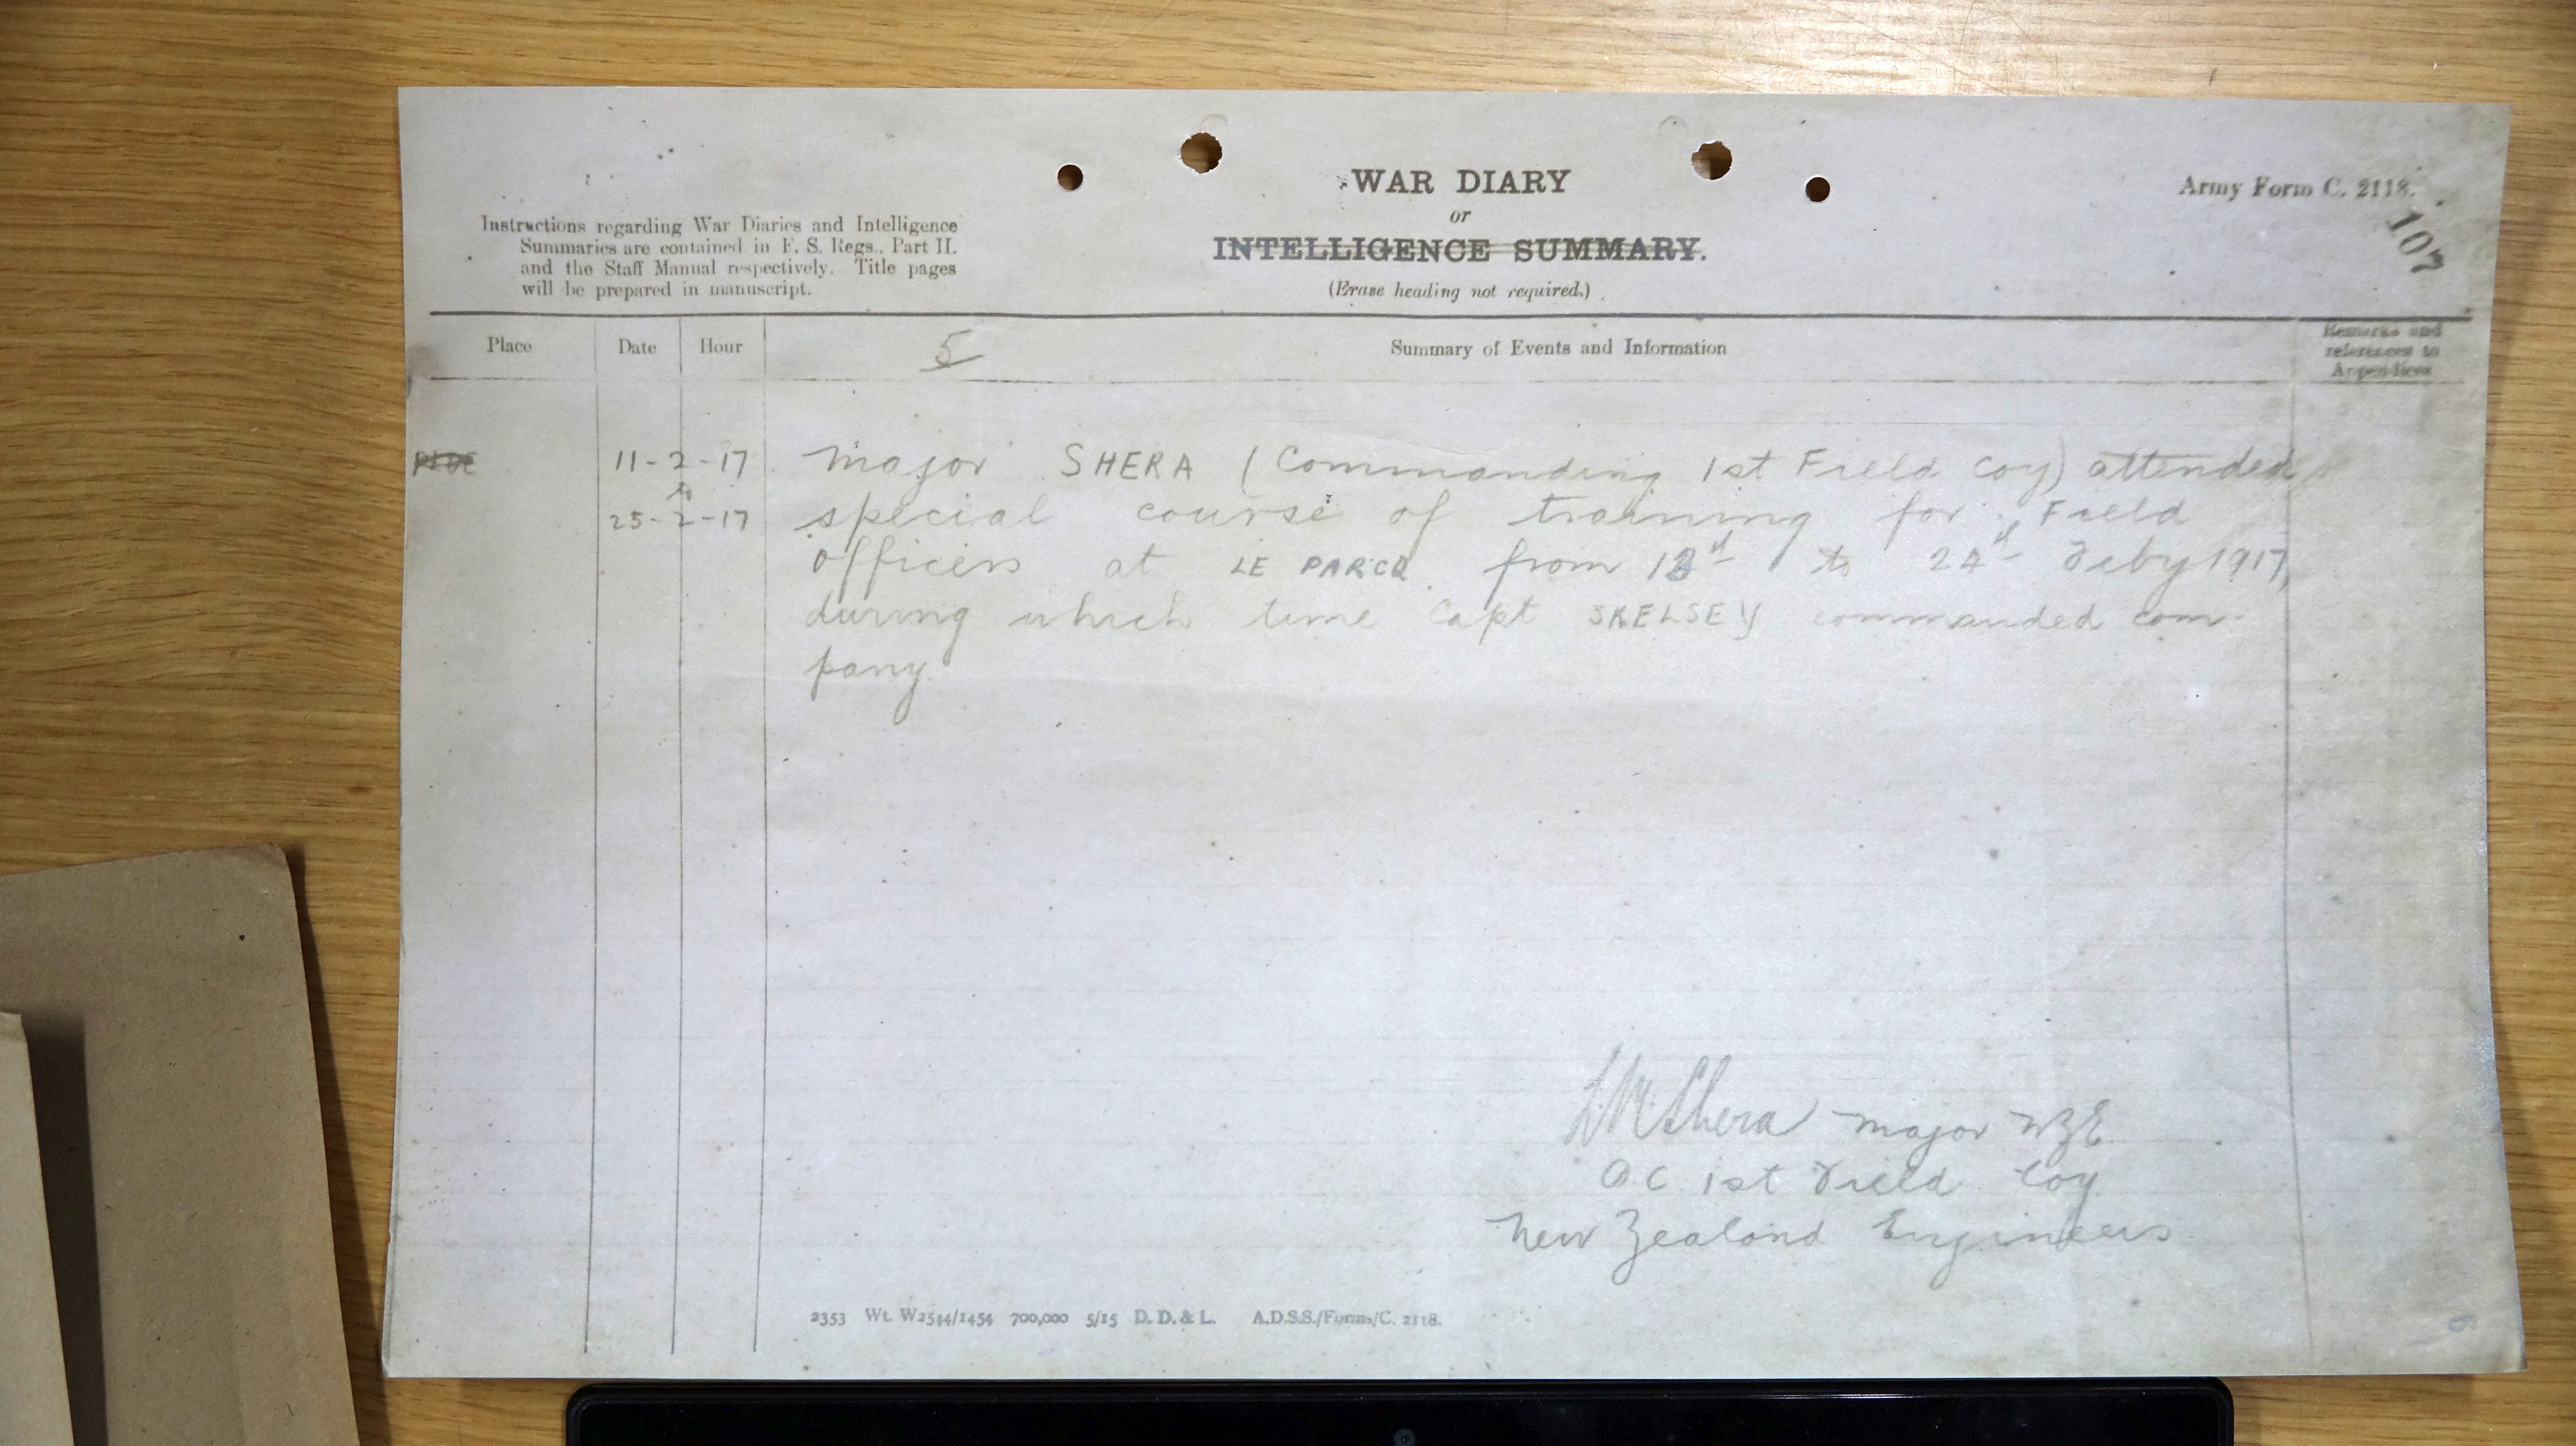 WAR DIARY
or
INTELLIGENCE SUMMARY.
(Erase heading not required.)
Army Form C. 2118.
107
Instructions regarding War Diaries and Intelligence
Summaries are contained in F. S. Regs., Part II.
and the Staff Manual respectively. Title pages
will be prepared in manuscript.
Place Date Hour 5 Summary of Events and Information
Remarks and
references to
Appendices
11-2-17 Major SHERA (Commanding 1st Field Coy) attended
to
25-2-17 special course of training for Field
officers at LE PARCQ from to Feby 1917,
during which time Capt SKELSEY commanded com-
pany
L M Shera Major NZE
O.C. 1st Field Coy
New Zealand Engineers
2353 Wt. W2544/1454 700,000 5/15 D. D. & L. A.D.S.S./Forms/C. 2118.